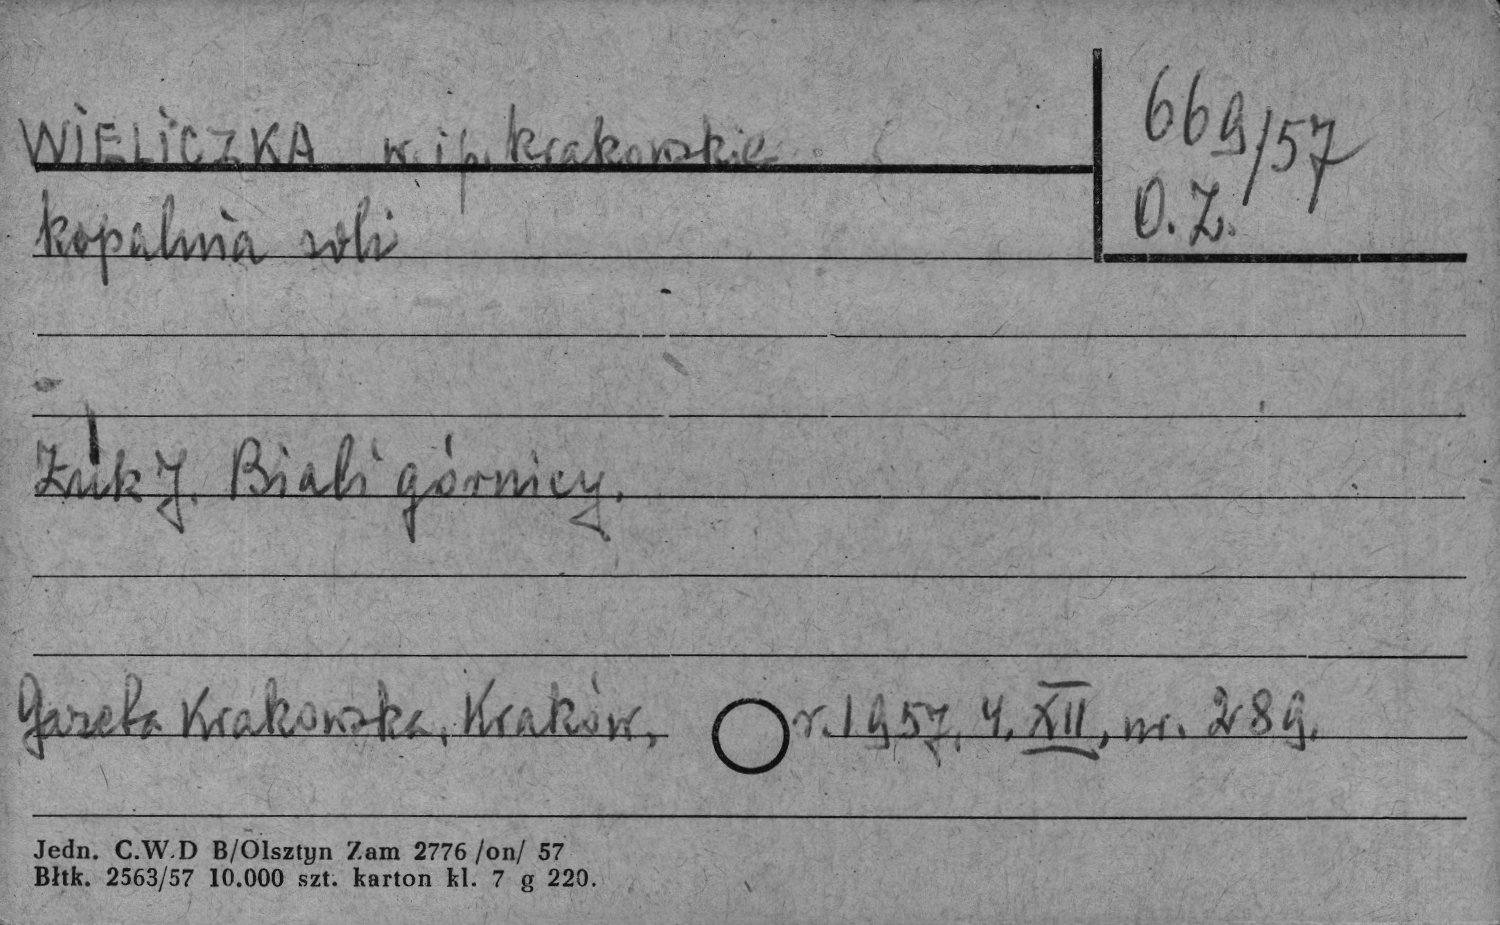 WIELICZKA w. i p. krakowskie
669/57
O.Z.
kopalnia soli
Żuk J. Biali górnicy.
Gazeta Krakowska, Kraków, r. 1957, 4. XII, nr. 289.
Jedn. C.W.D B/Olsztyn Zam 2776 /on/ 57
Błtk. 2563/57 10.000 szt. karton kl. 7 g 220.